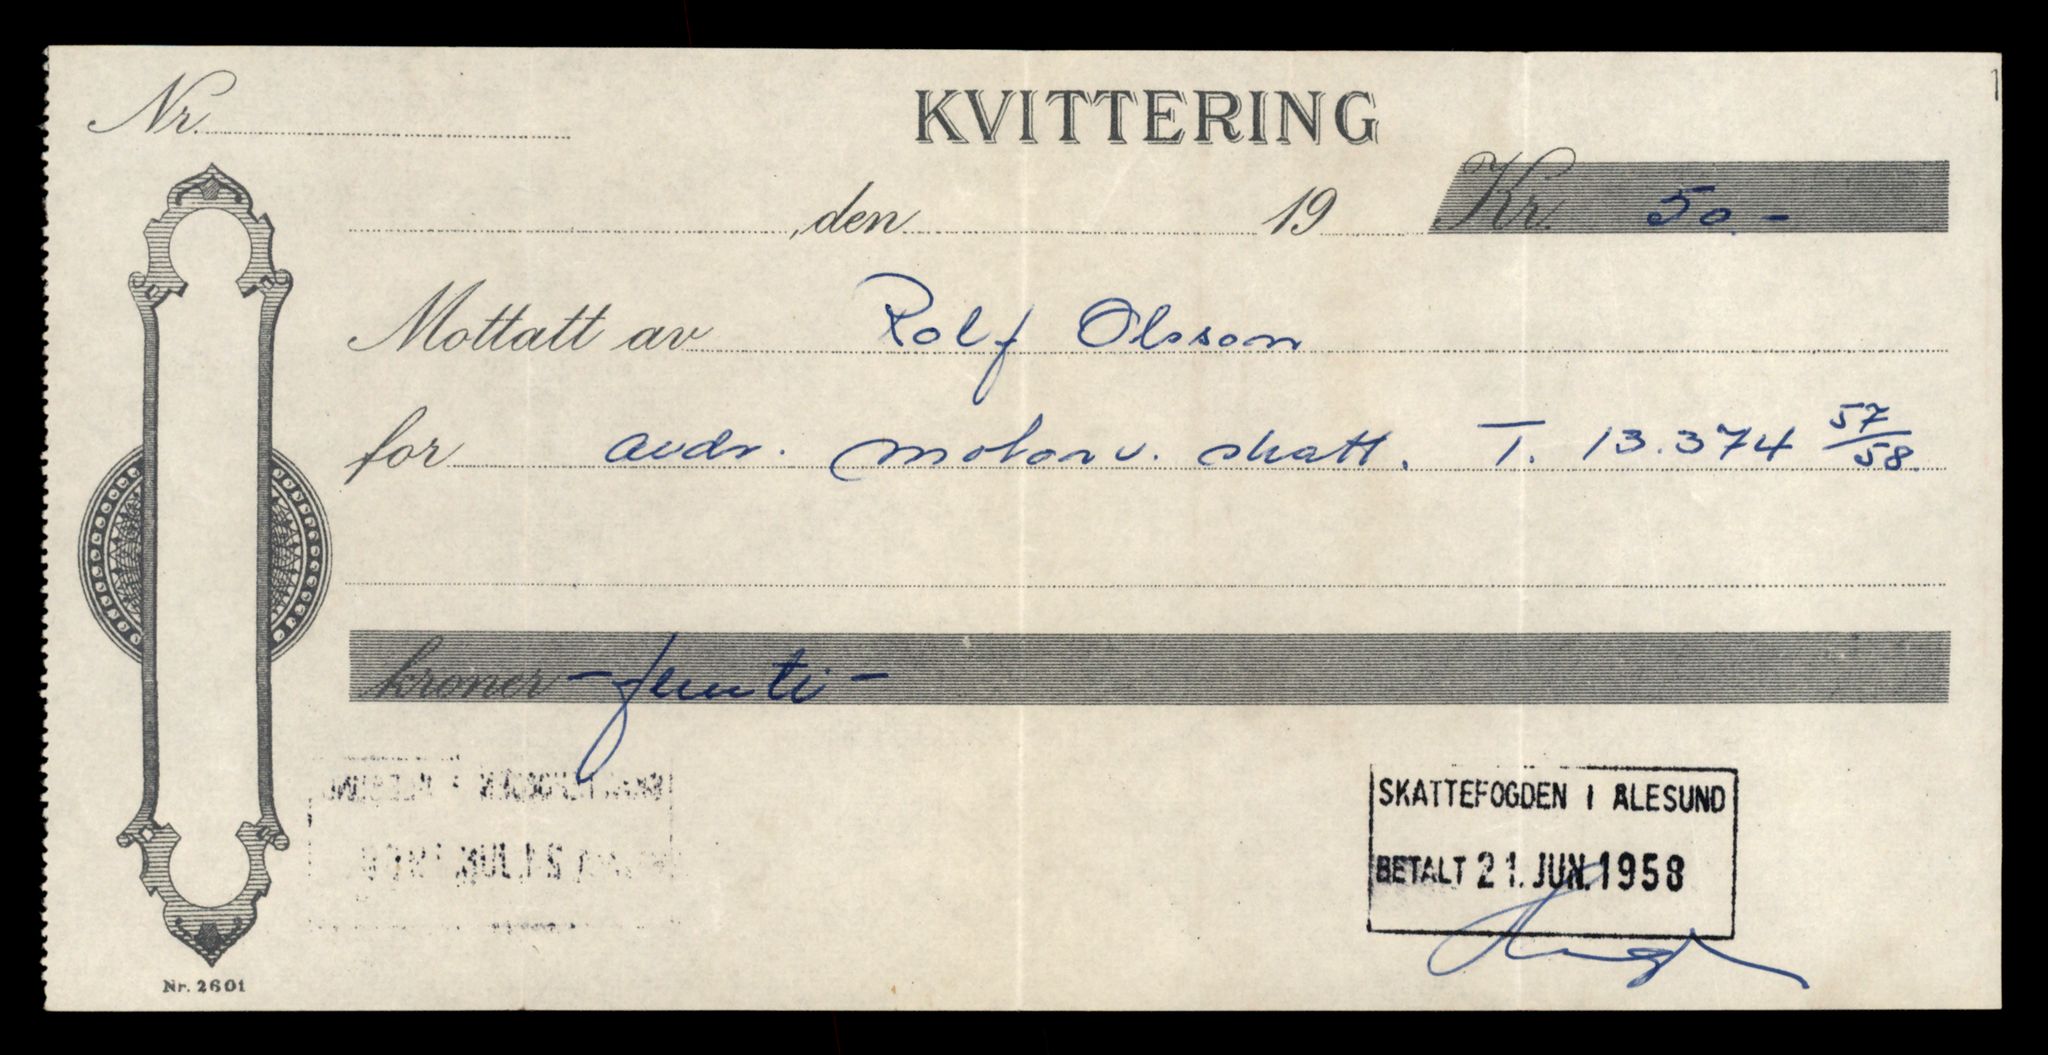 Nr.
KVITTERING
,den 19 Kr. 50.-
Mottatt av Rolf Olsson
for avdr. motorv. skatt. T. 13.374 57/58.
kroner - femti -
SKATTEFOGDEN I ÅLESUND
BETALT 21. JUN. 1958
Nr. 2601